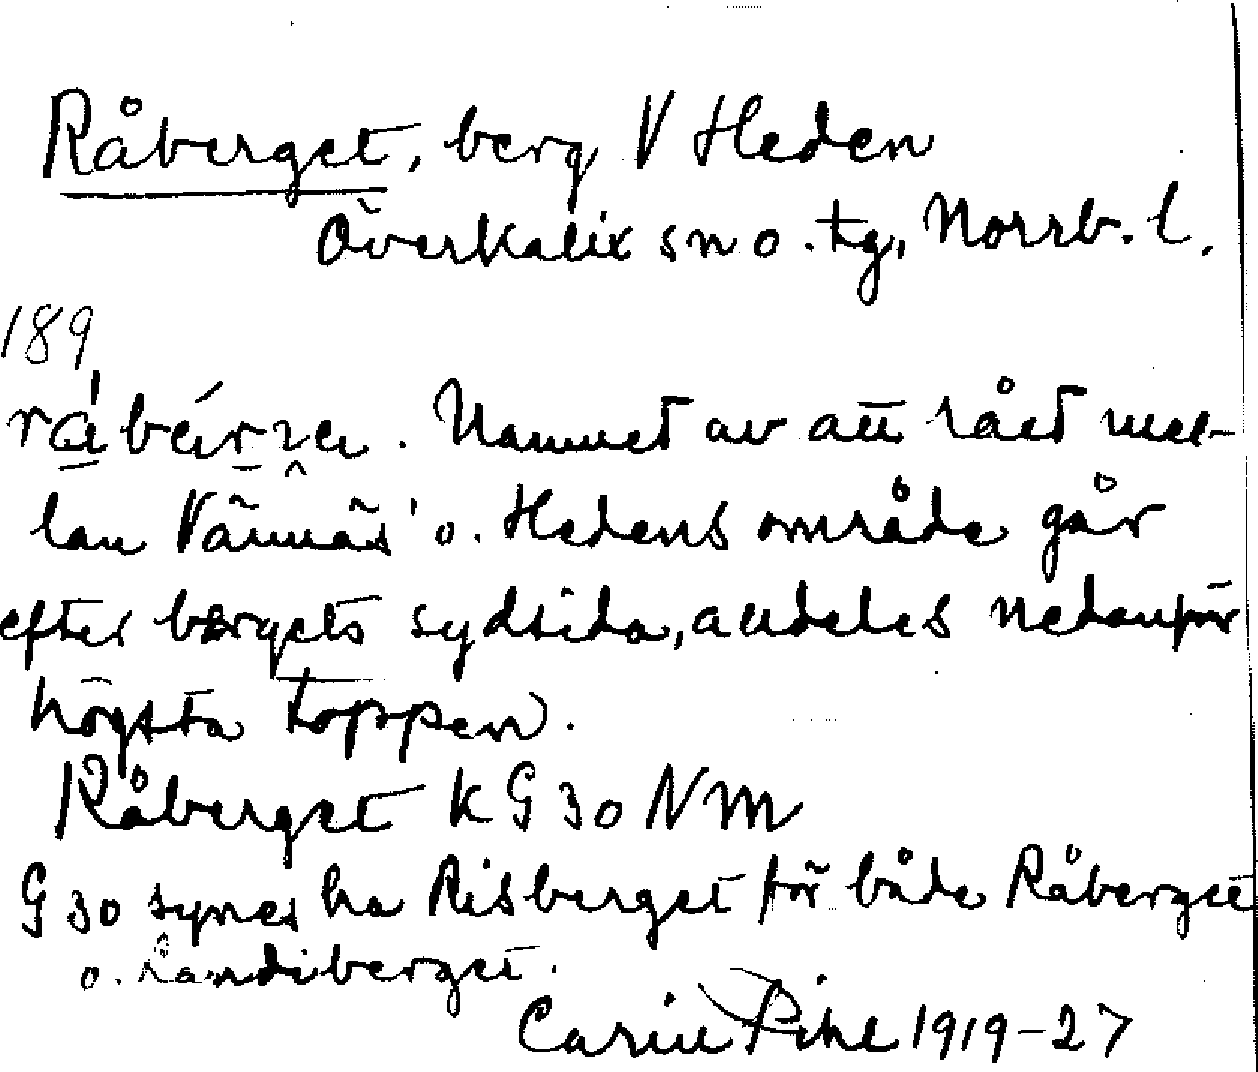 Råberget, berg V Heden
Överkalix sn o. tg, Norrb. l.
189
Namnet av att rået mel-
lan Vännäs' o. Hedens område går
efter bergets sydsida, alldeles nedanför
högsta toppen.
Råberget k G 30 NM
G 30 synes ha Risberget för både Råberget
o. Landiberget.
Carin Pihl 1919-27